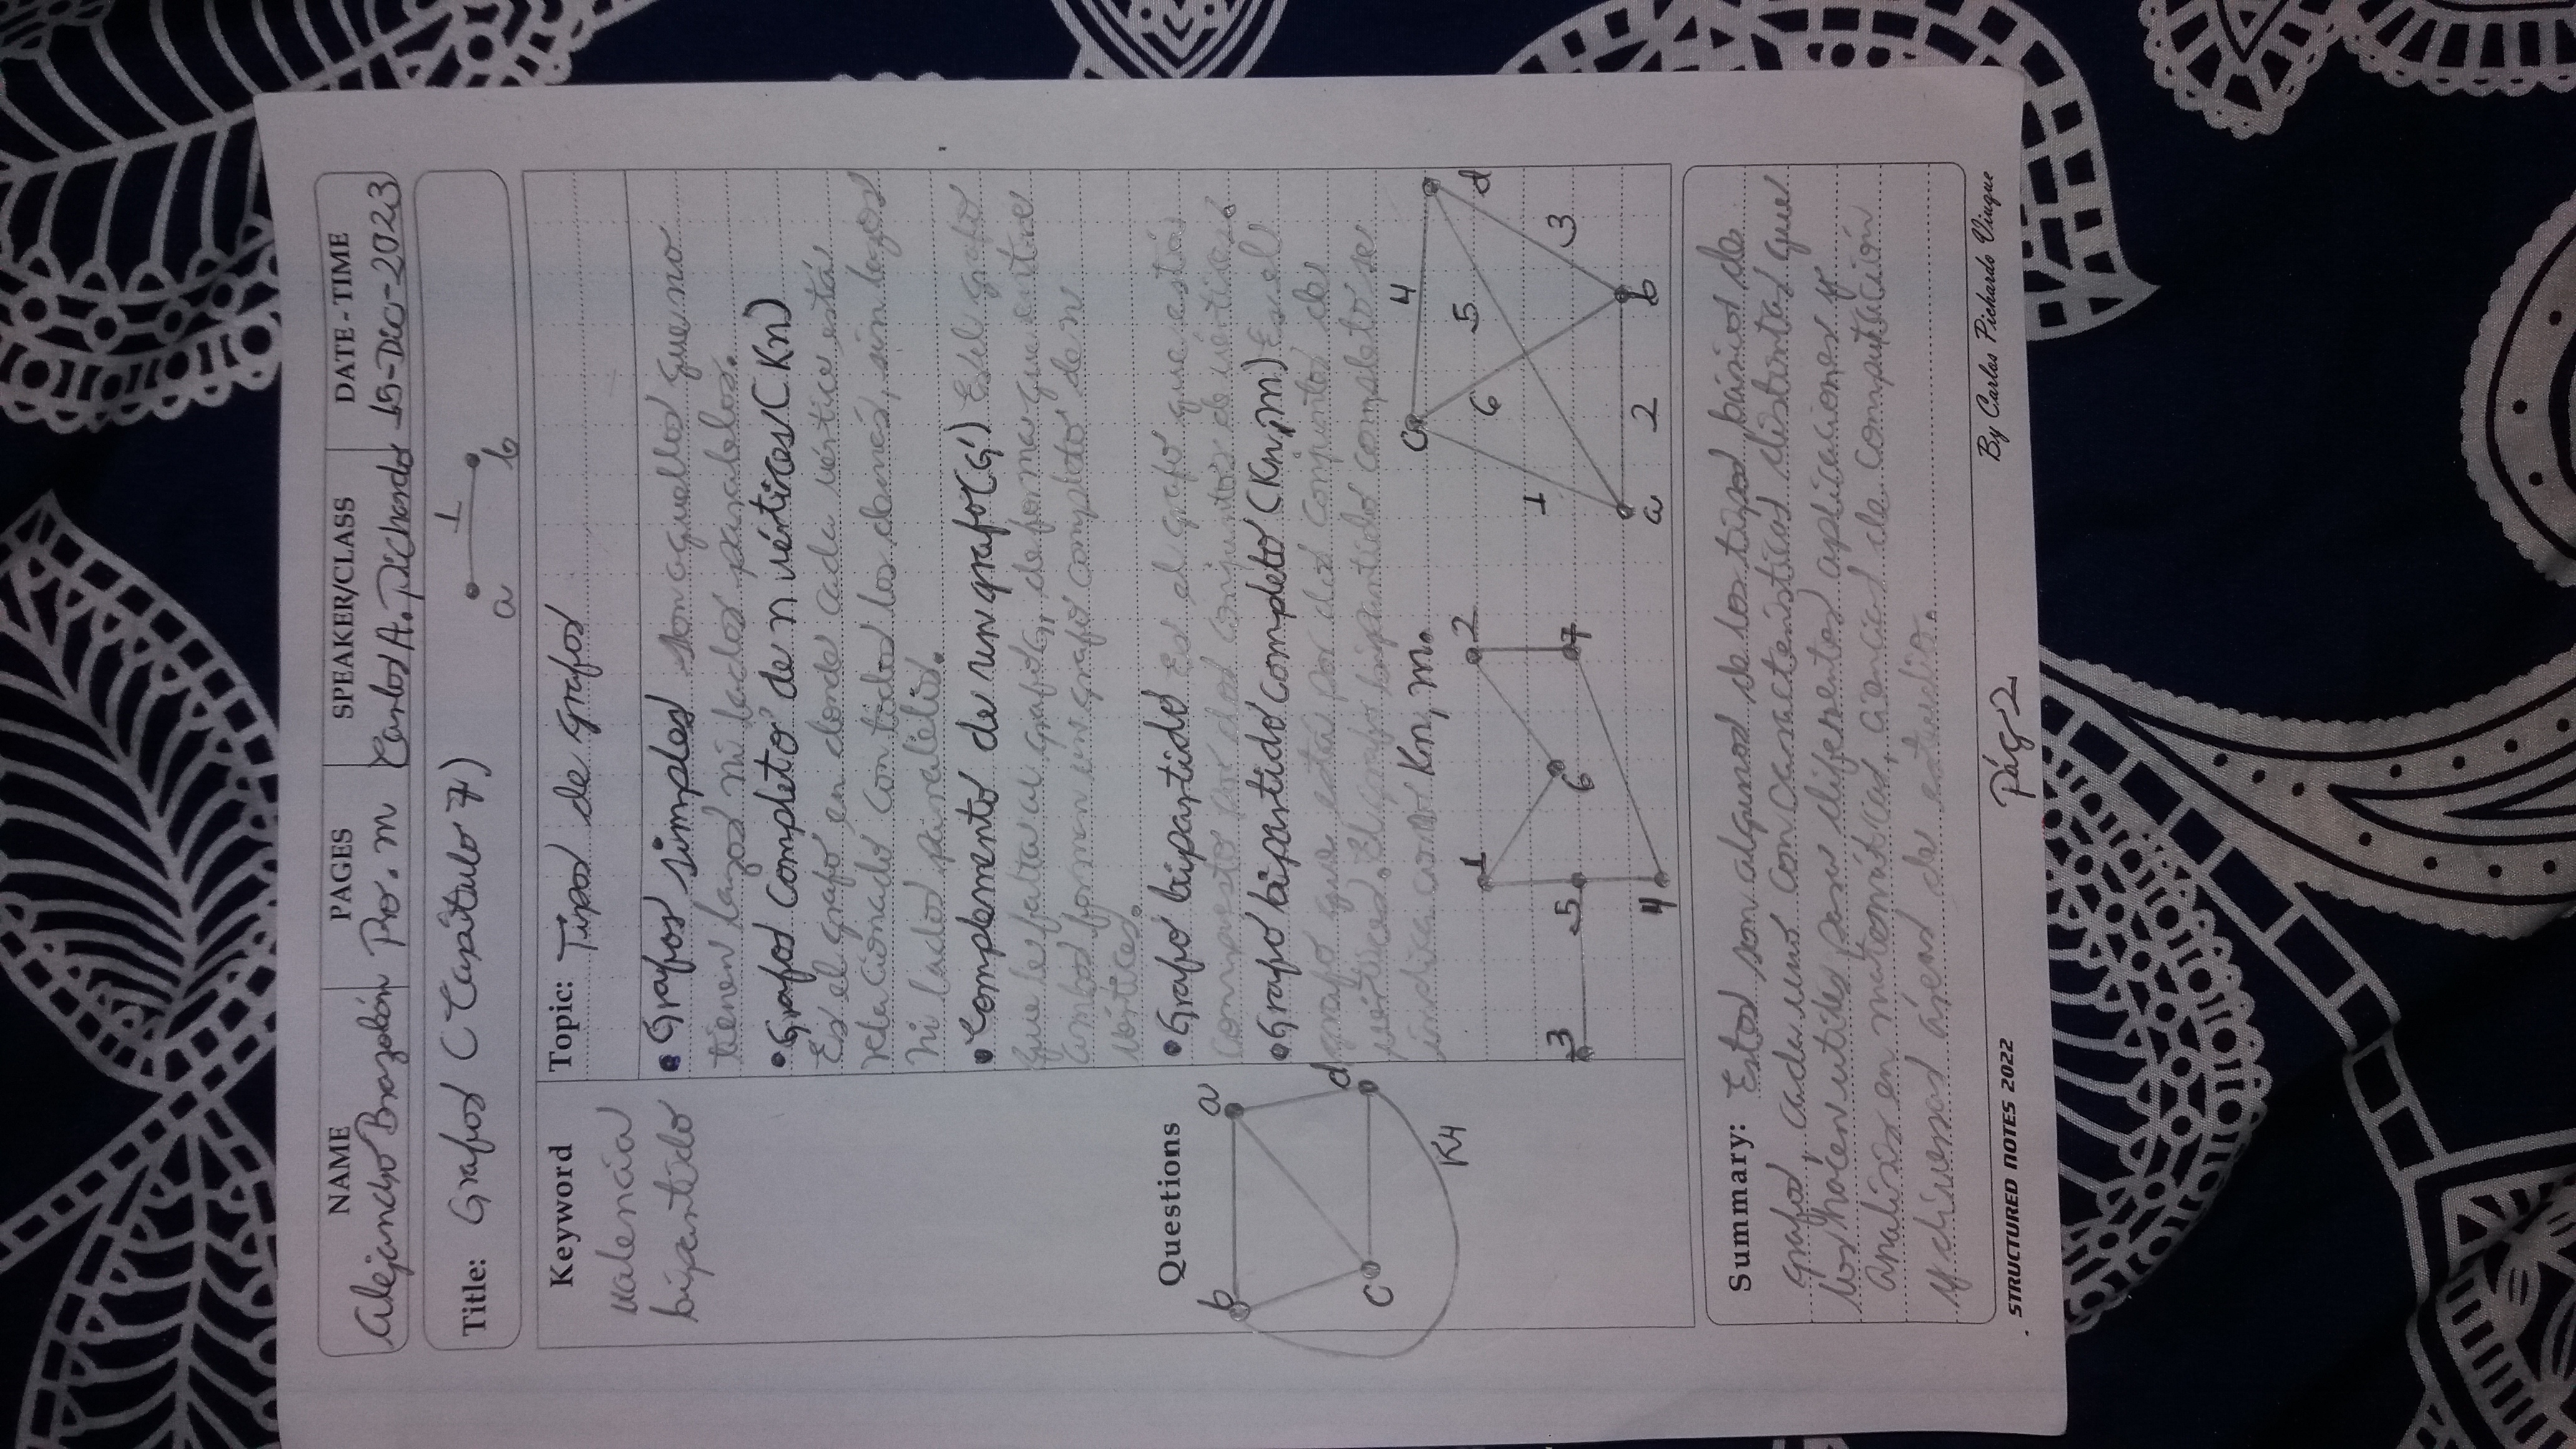 NAME PAGES SPEAKER/CLASS DATE-TIME
Alejandro Brazobán Pro. m Carlos A. Pichardo 15-Dic-2023
Title: Grafos (Capítulo 7)
1
a b
Keyword
valencia
bipartido
Topic: Tipos de grafos
• Grafos simples son aquellos que no
tienen lazos ni lados paralelos.
• Grafos completo de n vértices (Kn)
Es el grafo en donde cada vértice está
relacionado con todos los demás, sin lazos
ni lados paralelos.
• Complemento de un grafo (G') Es el grafo
que le falta al grafo G, de forma que entre
ambos forman un grafo completo de n
vértices.
• Grafo bipartido Es el grafo que está
compuesto por dos conjuntos de vértices.
• Grafo bipartido completo (Kn,m) Es el
grafo que está por dos conjuntos de
vértices. El grafo bipartido completo se
indica como Kn, m.
Questions
b a
d
c
K4
1 2
3 5 6 7
4
c 4
6 5 d
1 3
a 2 b
Summary: Estos son algunos de los tipos básicos de
grafos, cada uno con características distintas que
los hacen utiles para diferentes aplicaciones y
analisis en matemáticas, ciencias de computación
y diversas áreas de estudio.
STRUCTURED NOTES 2022 Pág 2 By Carlos Pichardo Viuque